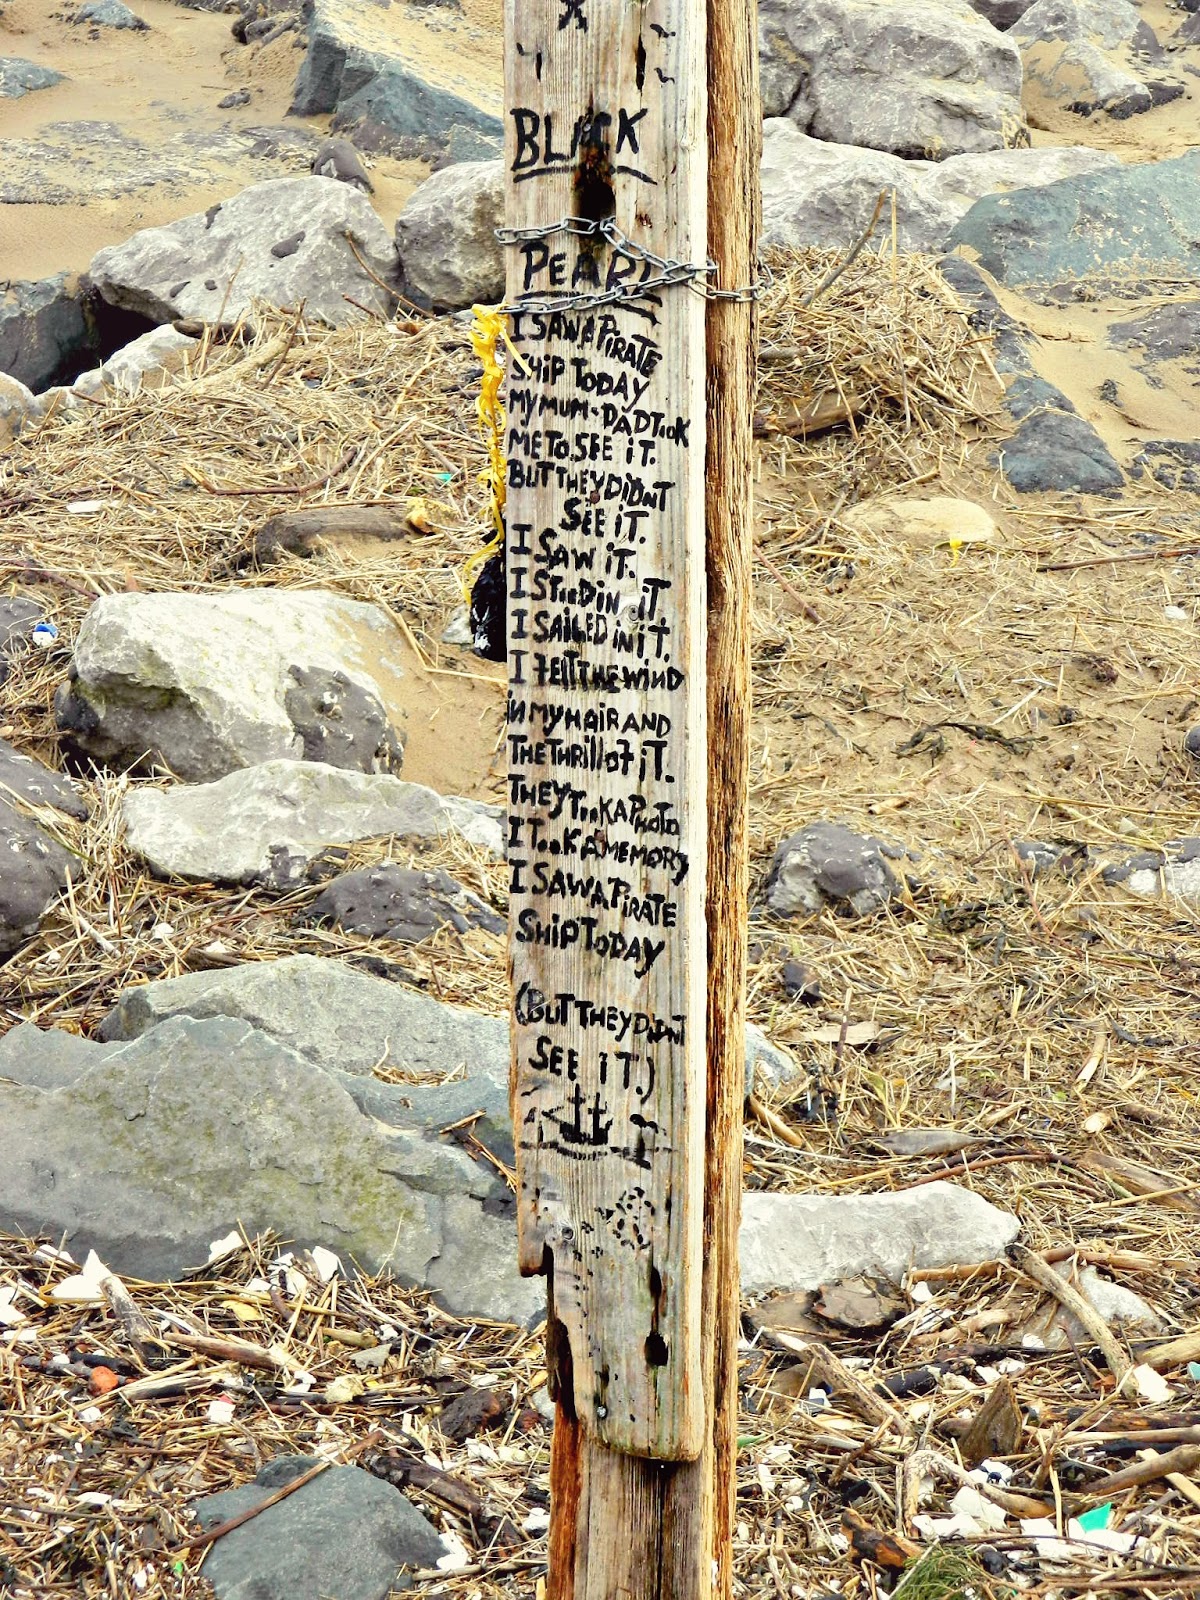 BLACK
PEARL
I SAW A PiRATE
SHiP TODAY
MY MUM + DAD TooK
ME TO SEE iT.
BUT THEY DiDNT
SEE iT.
I SAW iT.
I STooD iN iT.
I SAiLED iN iT.
I FElT THE WiND
iN MY HAiR AND
THE THRill OF iT.
THEY TooK A PHOTO
I TooK A MEMORY
I SAW A PiRATE
SHiP TODAY
(BUT THEY DiDNT
SEE iT.)